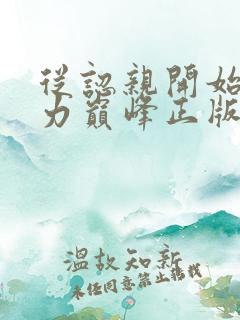 從認親開始
力巔峰正版
溫故知新
未经同意禁止转载